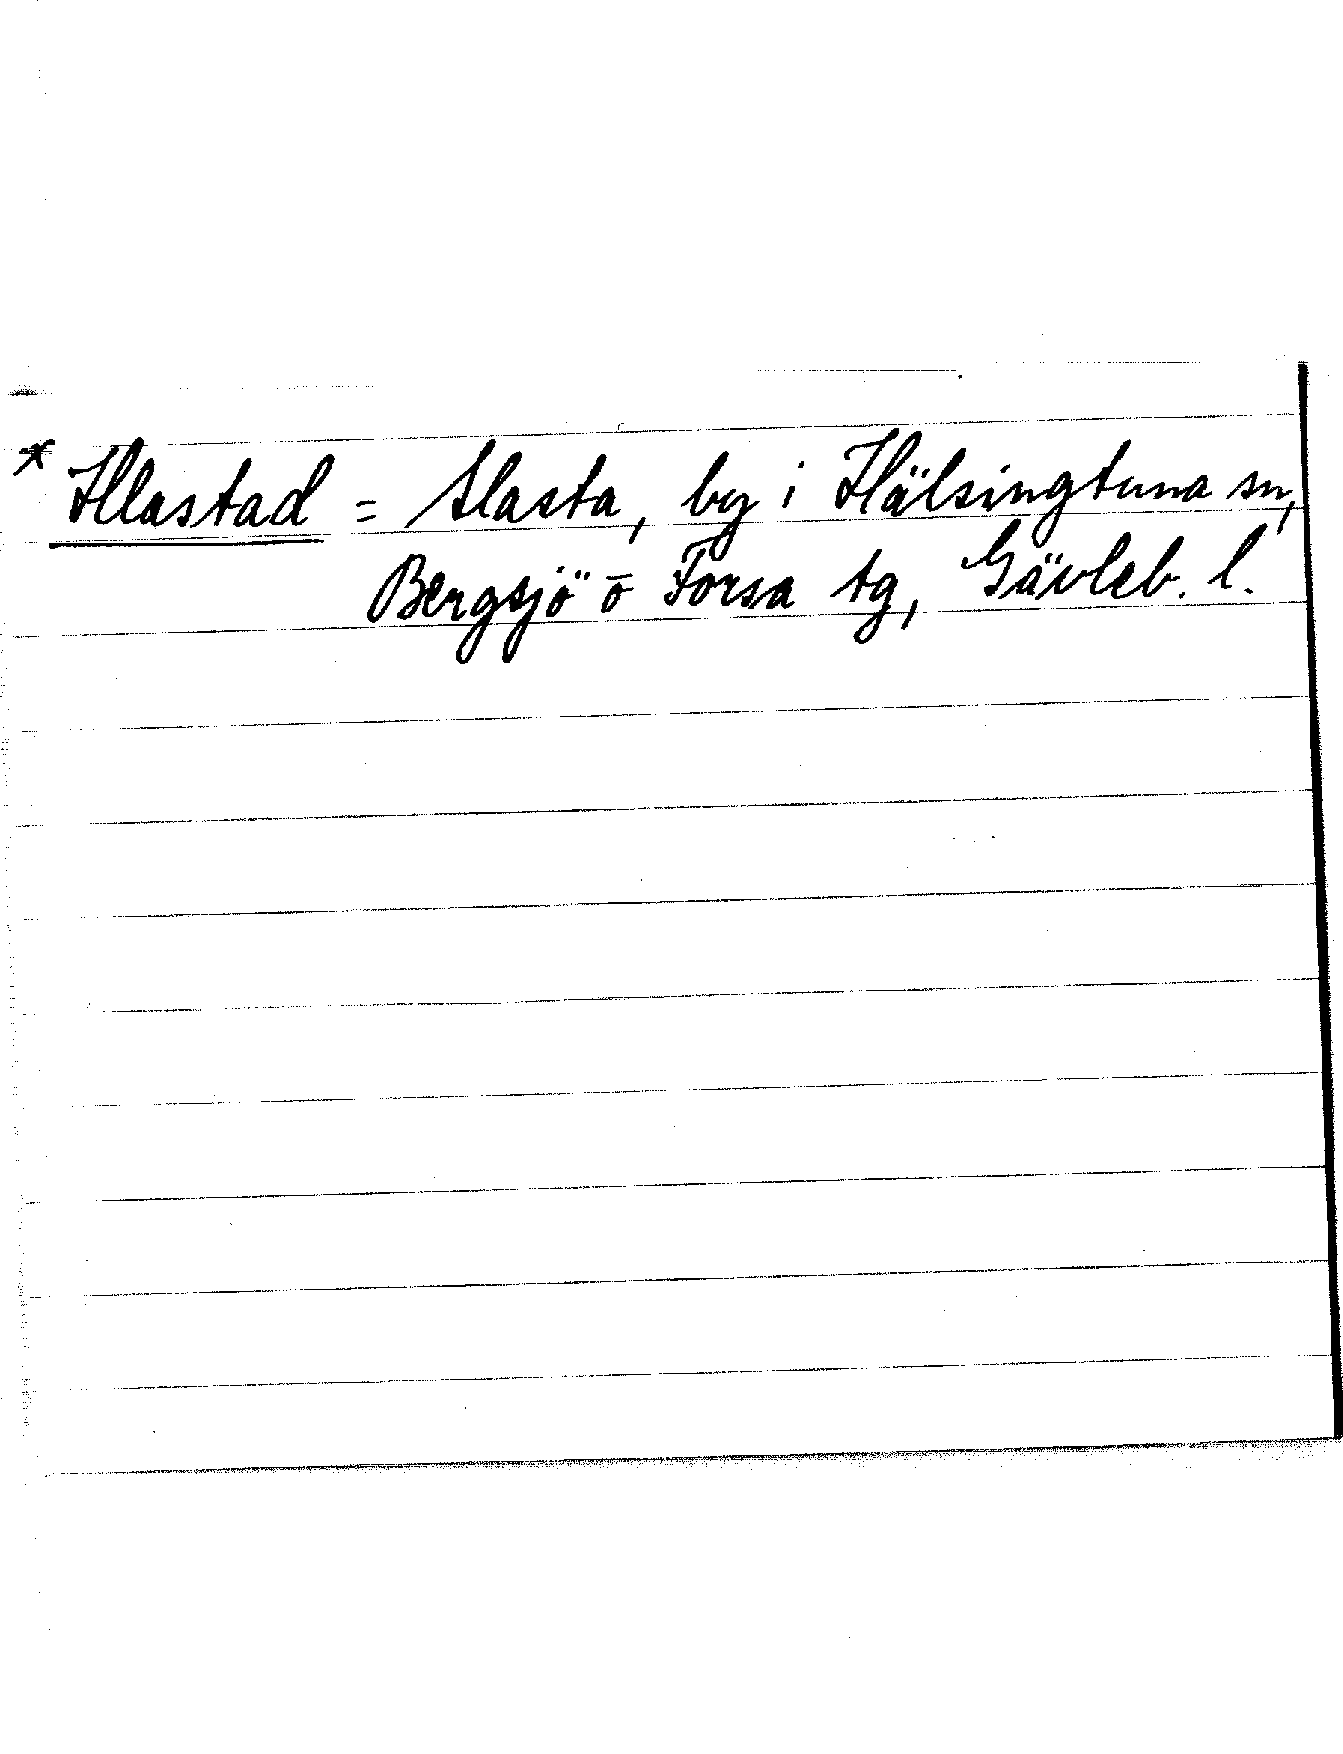 * Hlastad = Slasta, by i Hälsingtuna sn,
Bergsjö o Forsa tg, Gävleb. l.